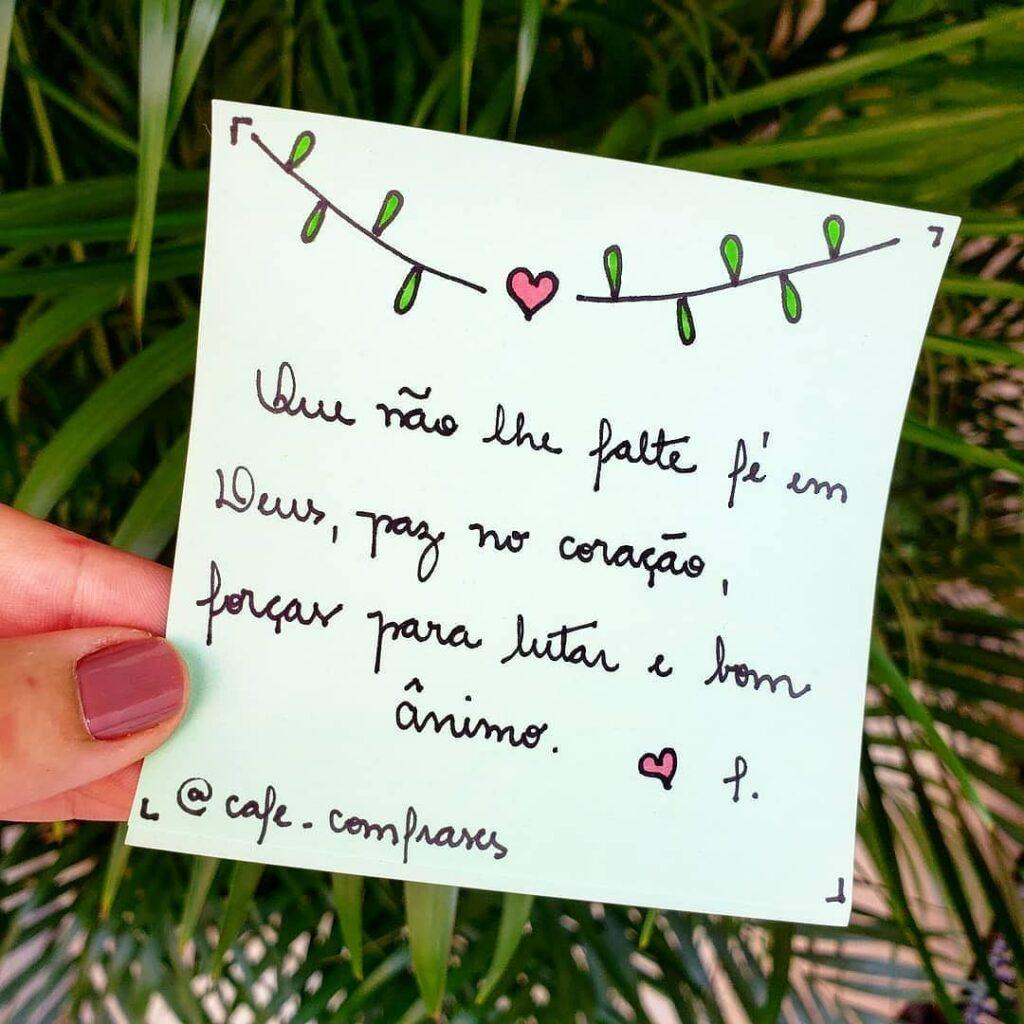 Que não lhe falte fé em
Deus, paz no coração,
forças para lutar e bom
ânimo.
f.
@cafe.comfrases